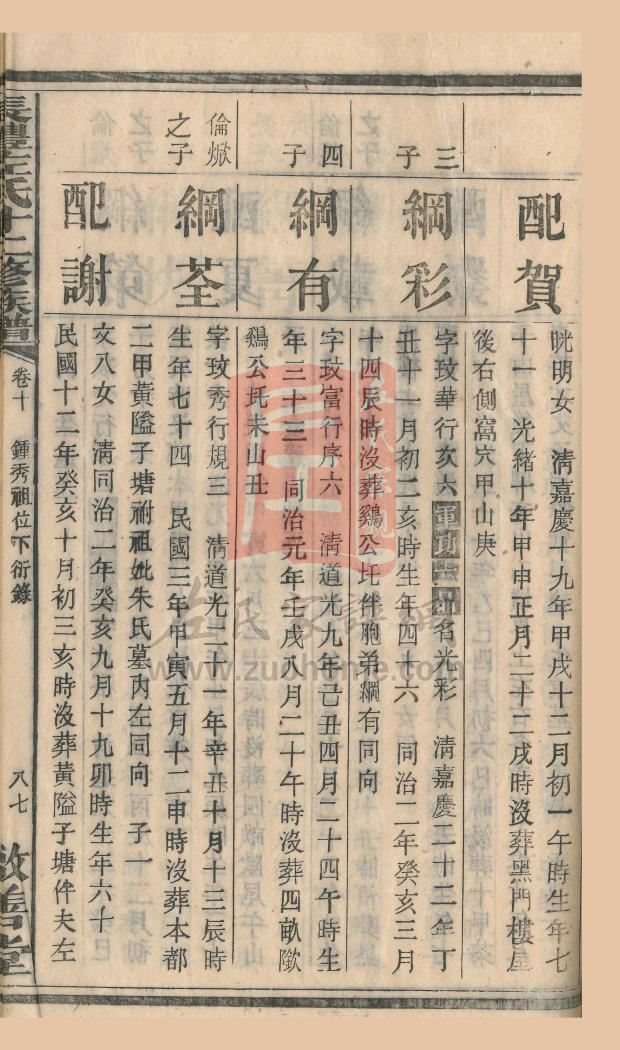 配賀
晄明女 清嘉慶十九年甲戌十二月初一午時生年七
十一 光緒十年甲申正月二十二戌時沒葬黑門樓屋
後右側窩穴甲山庚
三子
綱彩
字玟華行次六軍功六品名光彩 清嘉慶二十二年丁
丑十一月初二亥時生年四十六 同治二年癸亥三月
十四辰時沒葬鷄公圫伴胞弟綱有同向
四子
綱有
字玟富行序六 清道光九年己丑四月二十四午時生
年三十三 同治元年壬戌八月二十午時沒葬四畝歘
鷄公圫未山丑
倫焮之子
綱荃
字玟秀行規三 清道光二十一年辛丑十月十三辰時
生年七十四 民國三年甲寅五月十二申時沒葬本都
二甲黃隘子塘祔祖妣朱氏墓內左同向 子一
配謝
文八女 清同治二年癸亥九月十九卯時生年六十
民國十二年癸亥十月初三亥時沒葬黃隘子塘伴夫左
長禮左氏十二修族譜
卷十 鍾秀祖位下衍錄
八七
敘善堂
左氏家譜網
www.zuohome.com